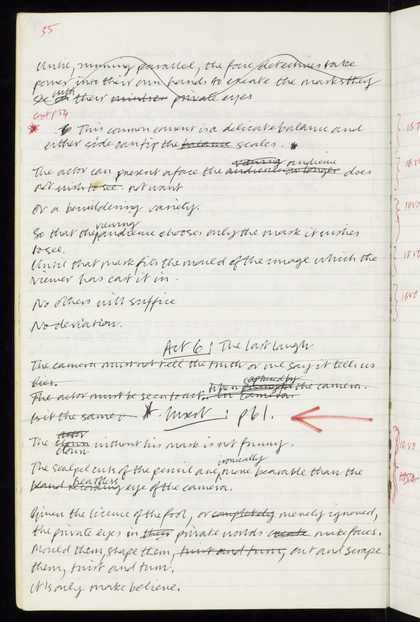 35
Until, running parallel, the four detectives take
power into their own hands to create the marks they
see with their mindset private eyes
This common consent is a delicate balance and
either side can tip the balance scales.
The actor can present a face the audience no longer viewing audience does
not wish to see. not want
Or a bewildering variety.
So that the viewing audience chooses only the mark it wishes
to see.
Until that mark fits the mould of the image which the
viewer has cast it in.
No others will suffice
No deviation.
Act 6: The Last Laugh
The camera must not tell the truth or we say it tells us
lies.
The actor must be seen to act. captured by the camera.
but the same
* Insert: pb1.
The clown actor clown without his mark is not funny.
The scalpel cuts of the pencil are ironically more bearable than the
bland recording heartless eye of the camera.
Given the licence of the fool, or completely merely ignored,
the private eyes in their private worlds create make faces.
Mould them, shape them, twist and turn, cut and scrape
them, twist and turn.
It is only make believe.